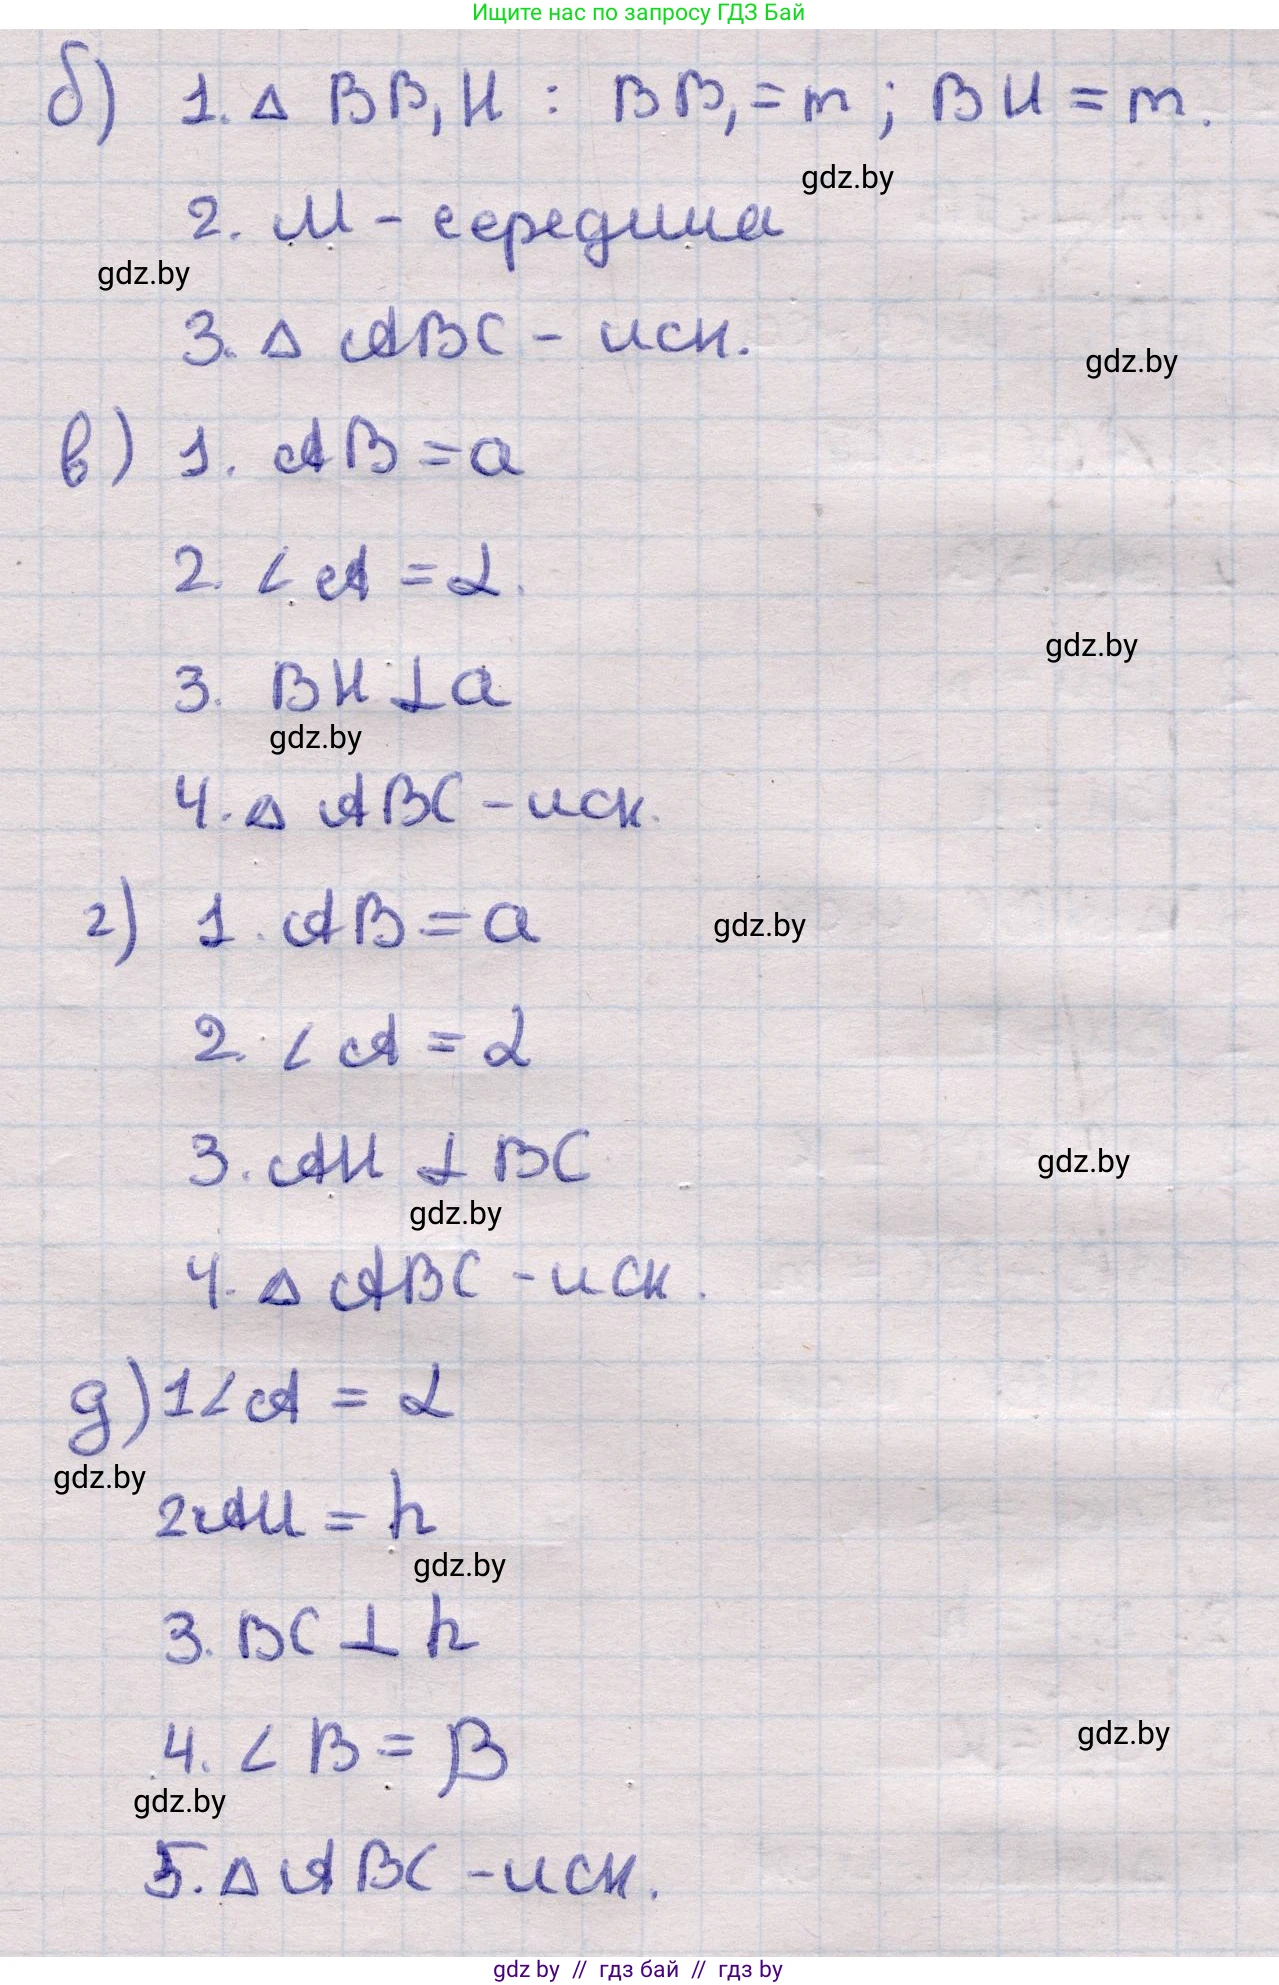 Ищите нас по запросу ГДЗ Бай
б) 1. Δ BB₁H : BB₁ = m ; BH = m.
gdz.by
2. M - середина
gdz.by
3. Δ ABC - иск.
gdz.by
в) 1. AB = a
2. ∠ A = α.
gdz.by
3. BH ⊥ a
gdz.by
4. Δ ABC - иск.
г) 1. AB = a
gdz.by
2. ∠ A = α
3. AH ⊥ BC
gdz.by
gdz.by
4. Δ ABC - иск.
д) 1 ∠ A = α
gdz.by
2. AH = h
gdz.by
3. BC ⊥ h
4. ∠ B = β
gdz.by
gdz.by
5. Δ ABC - иск.
gdz by // гдз бай // гдз by